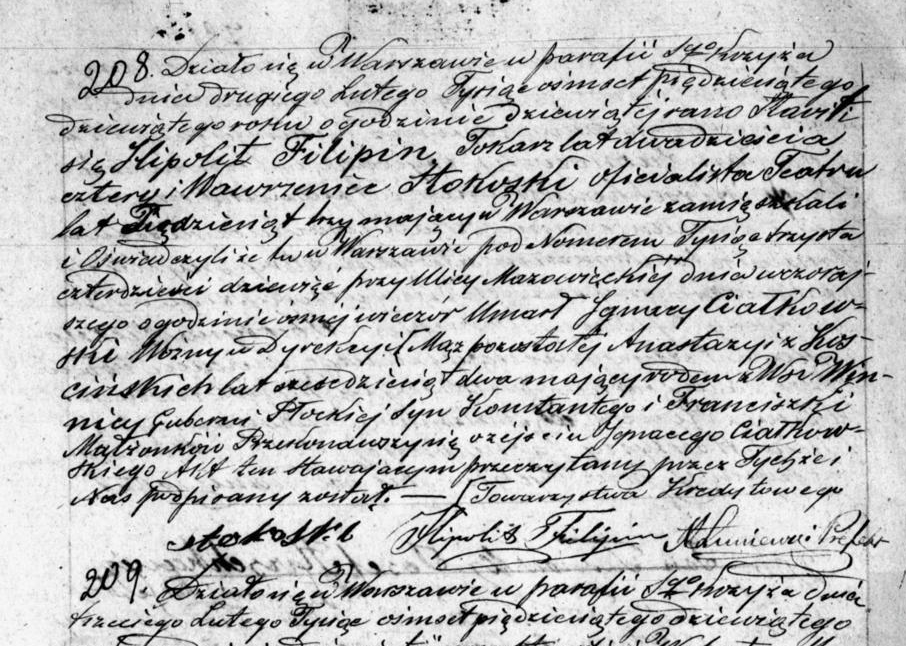 208. Działo się w Warszawie w parafii Sgo Krzyża
dnia drugiego Lutego Tysiąc ośmset piędziesiątego
dziewiątego roku o godzinie dziewiątej rano Stawili
się Hipolit Filipin, Tokarz lat dwadzieścia
cztery i Wawrzeniec Stokoski oficialista Teatru
lat Piędziesiąt trzy mający w Warszawie zamięszkali
i Oświadczyli że tu w Warszawie pod Nomerem Tysiąc trzysta
czterdzieści dziewięć przy Ulicy Mazowięckiéj dnia wczoraj-
szego o godzinie ósmej wieczór Umarł Ignacy Ciałkow-
ski Woźny w Dyrekcyi [ Mąż pozostałej Anastazyi z Koś-
cińskich lat sześcdziesiąt dwa mający rodem z Wsi Win-
nicy Guberni Płockiej Syn Konstantego i Franciszki
Małżonków Przekonawszy się o zejściu Ignacego Ciałkow-
skiego Akt ten stawającym przeczytany przez Tychże i
Nas podpisany został. — [ Towarzystwa Kredytowego
Stokoski Hipolit Filipin
209. Działo się w Warszawie w parafii Sgo Krzyża dnia
trzeciego Lutego Tysiąc ośmset piędziesiątego dziewiątego